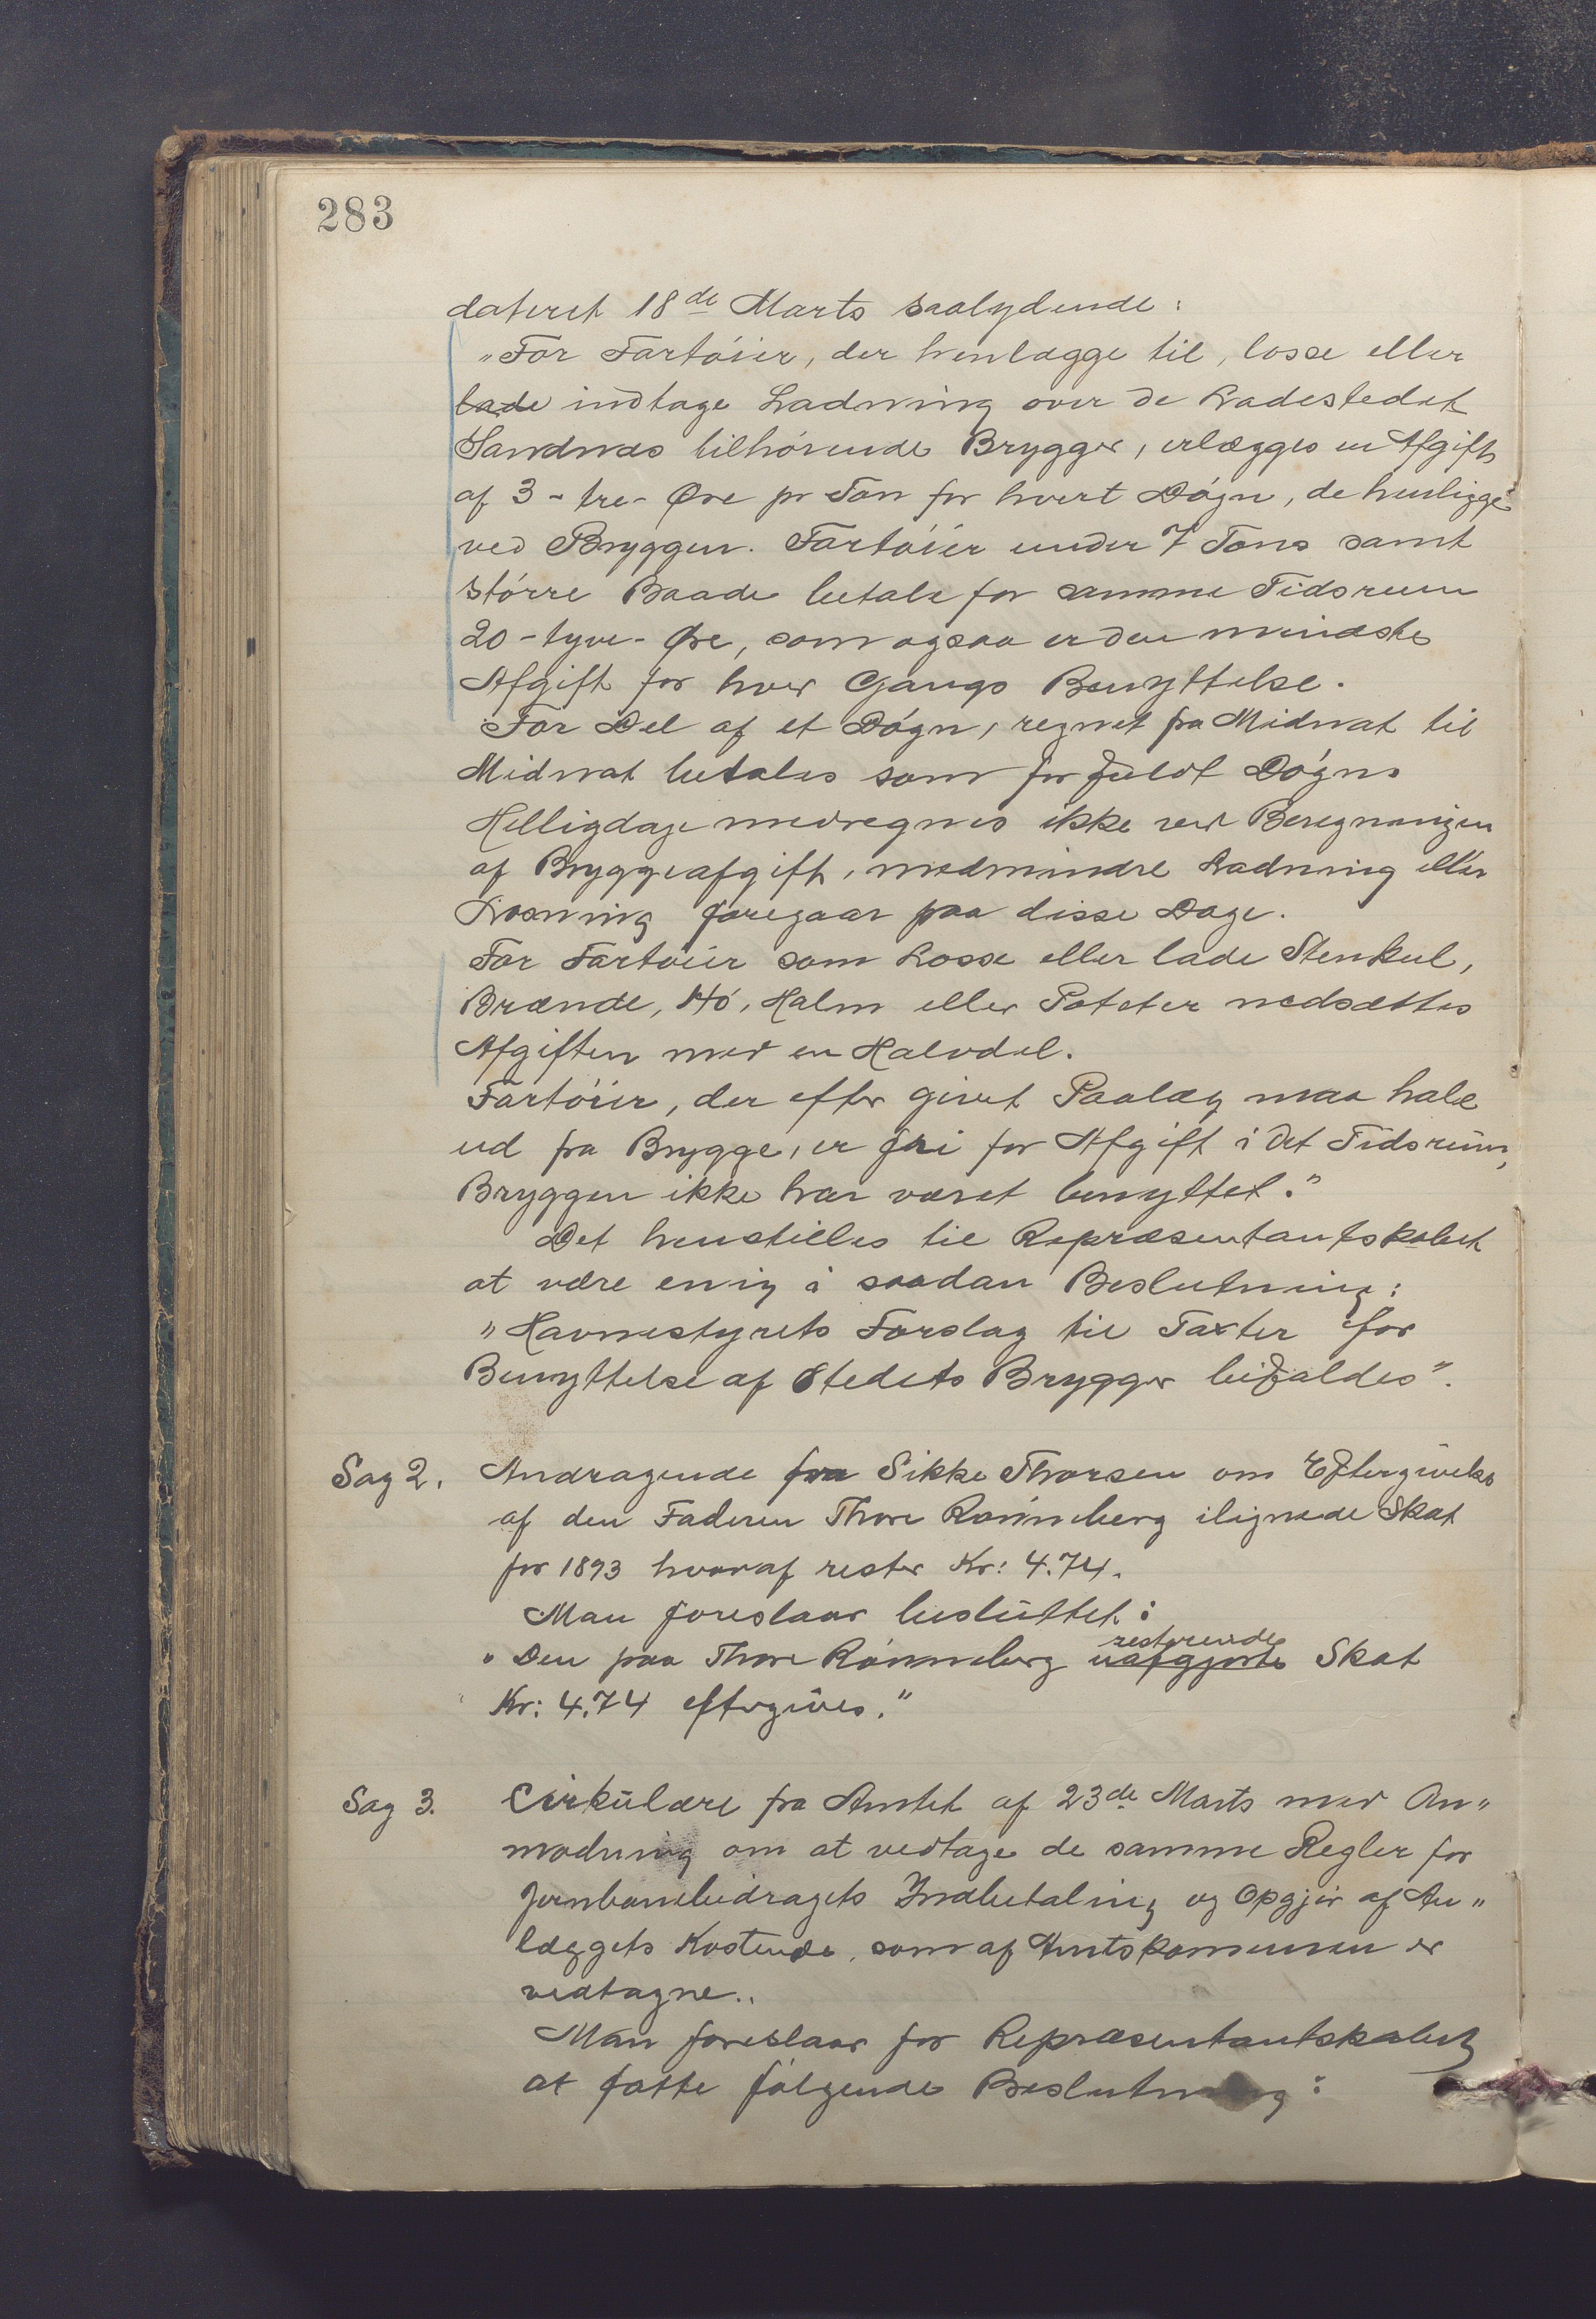 283
dateret 18de Marts saalydende:
"For Fartóier, der henlægge til, losse eller
lade indtage Ladning over de Ladestedet
Sandnæs tilhórende Brygger, erlægges en Afgift
af 3 - tre - Øre pr Ton for hvert Dógn, de henligge
ved Bryggen. Fartóier under 7 Tons samt
stórre Baade betale for samme Tidsrum
20 - tyve - Øre, som ogsaa er den mindste
Afgift for hver Gangs Benyttelse.
For Del af et Dógn, regnet fra Midnat til
Midnat betales som for fuldt Dógn.
Helligdage medregnes ikke ved Beregningen
af Bryggeafgift, medmindre Ladning eller
Losning foregaar paa disse Dage.
For Fartóier som Losse eller lade Stenkul,
Brænde, Hó, Halm eller Poteter nedsættes
Afgiften med en Halvdel.
Fartóier, der efter givet Paalæg maa hale
ud fra Brygge, er fri for Afgift i det Tidsrum,
Bryggen ikke har været benyttet."
Det henstilles til Repræsentantskabet
at være enig i saadan Beslutning:
"Havnestyrets Forslag til Taxter for
Benyttelse af Stedets Brygger bifaldes".
Sag 2. Andragende fra Sikke Thorsen om Eftergivelse
af den Faderen Thore Rónneberg ilignede Skat
for 1893 hvoraf rester Kr: 4.74.
Man foreslaar besluttet:
"Den paa Thore Rónneberg uafgjorte restererende Skat
Kr: 4.74 eftergives."
Sag 3. Cirkulære fra Amtet af 23de Marts med An"
modning om at vedtage de samme Regler for
Jernbanebidragets Indbetaling og Opgjór af An"
læggets Kostende, som af Amtskommunen er
vedtagne.
Man foreslaar for Repræsentantskabet
at fatte fólgende Beslutning: